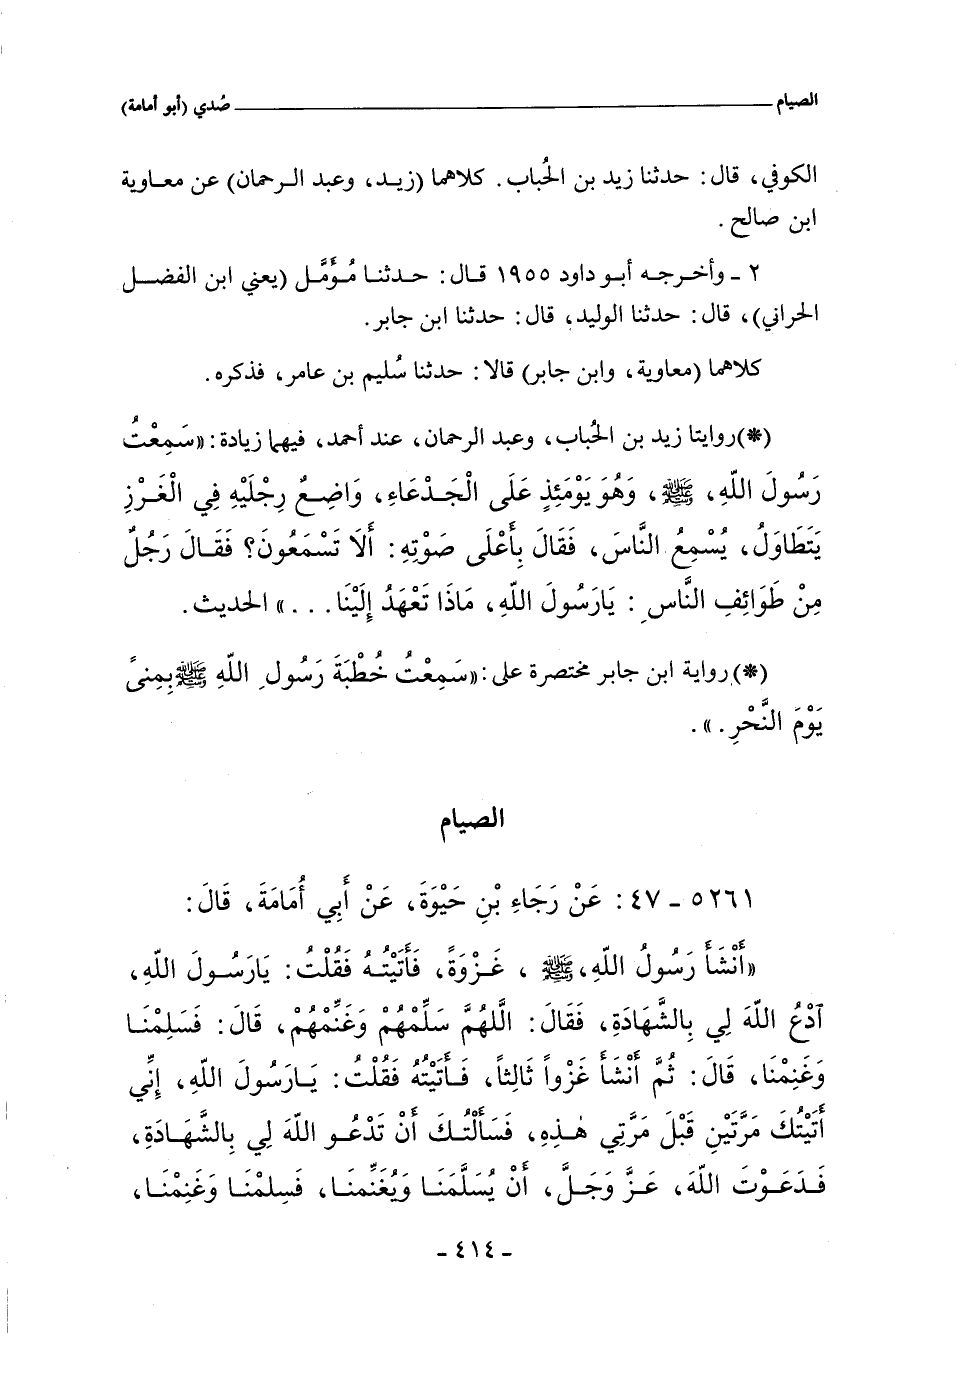 الصيام ــــــــــ صُدي (أبو أمامة)
الكوفي، قال: حدثنا زيد بن الحُباب. كلاهما (زيد، وعبد الرحمان) عن معاوية
ابن صالح .
٢ - وأخرجه أبو داود ١٩٥٥ قال: حدثنا مُؤَمَّل (يعني ابن الفضل
الحراني)، قال: حدثنا الوليد، قال: حدثنا ابن جابر.
كلاهما (معاوية، وابن جابر) قالا: حدثنا سُليم بن عامر، فذكره.
(*) روايتا زيد بن الحُباب، وعبد الرحمان، عند أحمد، فيهما زيادة: «سَمِعْتُ
رَسُولَ اللّهِ، ﷺ، وَهُوَ يَوْمَئِذٍ عَلَى الْجَدْعَاءِ، وَاضِعٌ رِجْلَيْهِ فِي الْغَرْزِ
يَتَطَاوَلُ، يُسْمِعُ النَّاسَ، فَقَالَ بِأَعْلَى صَوْتِهِ: أَلَا تَسْمَعُونَ؟ فَقَالَ رَجُلٌ
مِنْ طَوَائِفِ النَّاسِ: يَارَسُولَ اللّهِ، مَاذَا تَعْهَدُ إِلَيْنَا . . . » الحديث .
(*) رواية ابن جابر مختصرة على: «سَمِعْتُ خُطْبَةَ رَسُولِ اللّهِ ﷺ بِمِنىً
يَوْمَ النَّحْرِ . ».
الصيام
٥٢٦١ - ٤٧: عَنْ رَجَاءِ بْنِ حَيْوَةَ، عَنْ أَبِي أُمَامَةَ، قَالَ:
«أَنْشَأَ رَسُولُ اللّهِ، ﷺ ، غَزْوَةً، فَأَتَيْتُهُ فَقُلْتُ: يَارَسُولَ اللّهِ،
آدْعُ اللّهَ لِي بِالشَّهَادَةِ، فَقَالَ: اللَّهُمَّ سَلِّمْهُمْ وَغَنِّمْهُمْ، قَالَ: فَسَلِمْنَا
وَغَنِمْنَا، قَالَ: ثُمَّ أَنْشَأَ غَزْواً ثَالِثاً، فَأَتَيْتُهُ فَقُلْتُ: يَارَسُولَ اللّهِ، إِنِّي
أَتَيْتُكَ مَرَّتَيْنِ قَبْلَ مَرَّتِي هٰذِهِ، فَسَأَلْتُكَ أَنْ تَدْعُو اللّهَ لِي بِالشَّهَادَةِ،
فَدَعَوْتَ اللّهَ، عَزَّ وَجَلَّ، أَنْ يُسَلِّمَنَا وَيُغَنِّمَنَا، فَسِلِمْنَا وَغَنِمْنَا،
- ٤١٤ -